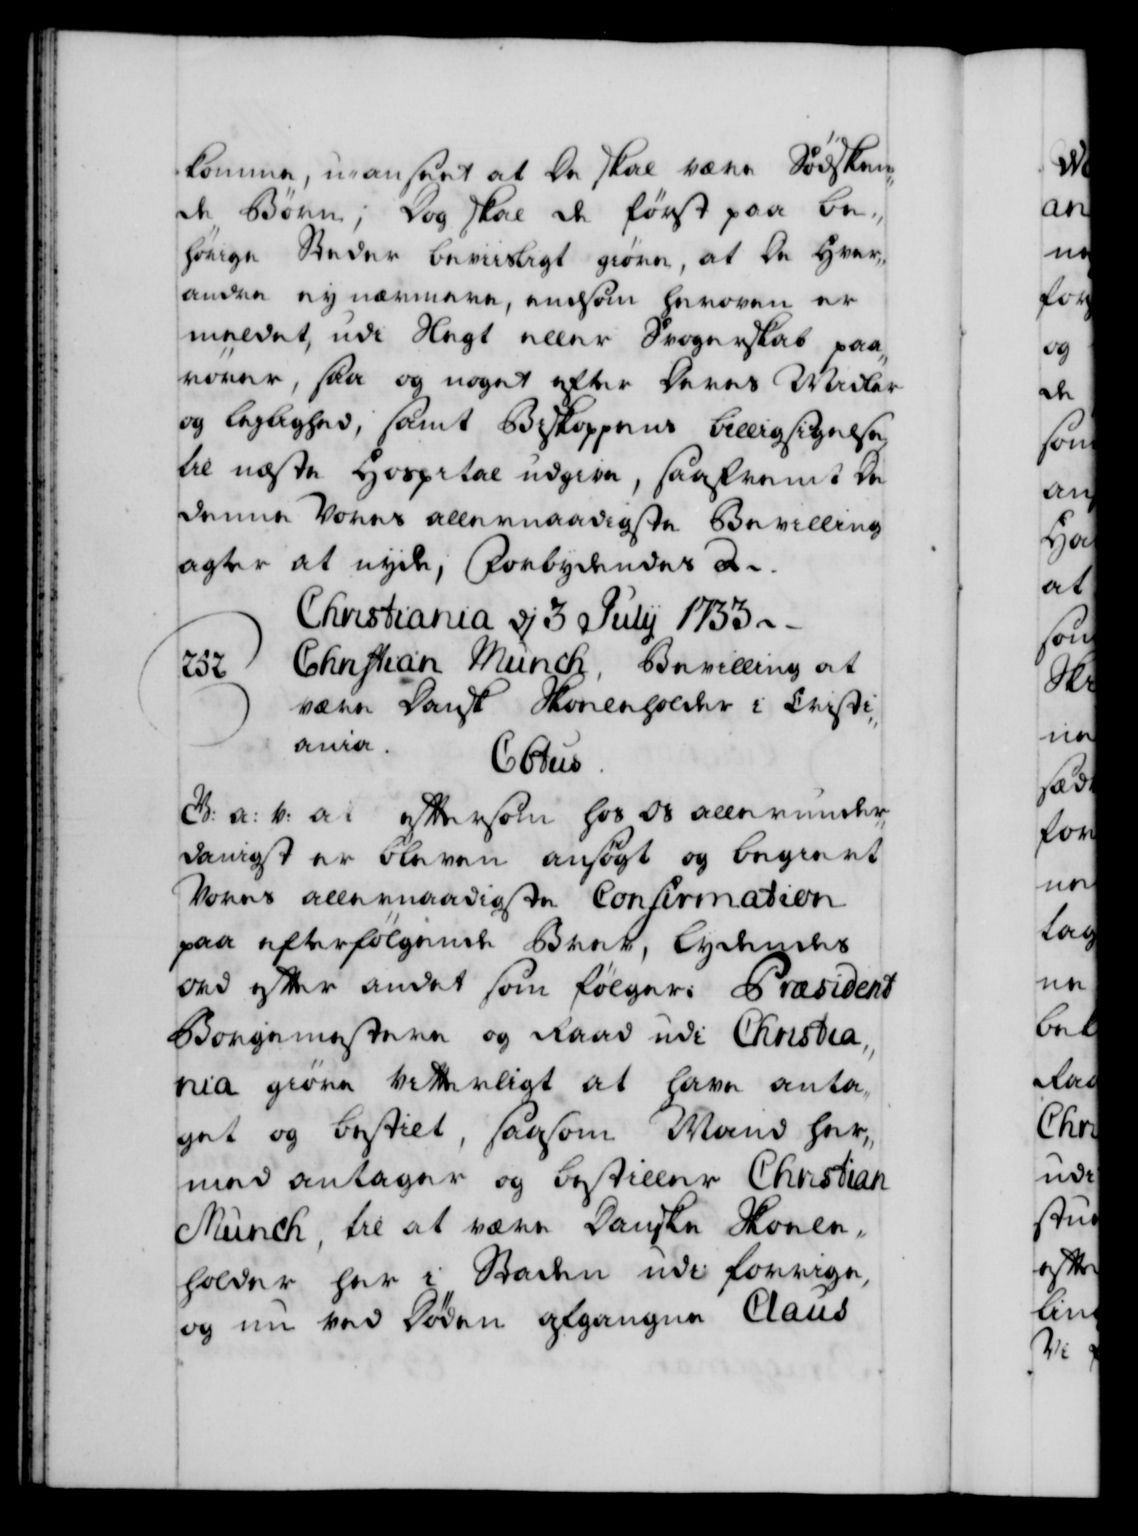 komme, uanseet at De skal være Sødsken„
de Børn; Dog skal de først paa be„
hørige Steder beviisligt giøre, at De hver„
andre ey nærmere, end som heroven er
meldet, udi Slegt eller Svogerskab paa„
rører, saa og noget efter Deres Middler
og leylighed, samt Biskoppens billigsigelse
til næste Hospital udgive, saafremt De
denne Vores allernaadigste Bevilling
agter at nyde; Forbydendes &.
Christiania dj 3 Julij 1733
252 Christian Munch, Bevilling at
være Dansk Skoleholder i Cristi„
ania.
C 6tus.
G: a: v: a: eftersom hos Os allerunder„
danigst er bleven ansøgt og begiert
Vores allernaadigste Confirmation
paa efterfølgende Brev, lydendes
ord efter andet som følger: Præsident
Borgemestere og Raad udi Christia„
nia giøre vitterligt at have anta„
get og bestilt, saasom Wi and her„
med antager og bestiller Christian
Munch, til at være Danske Skole„
holder her i Staden udi forrige,
og nu ved Døden afgangne Claus